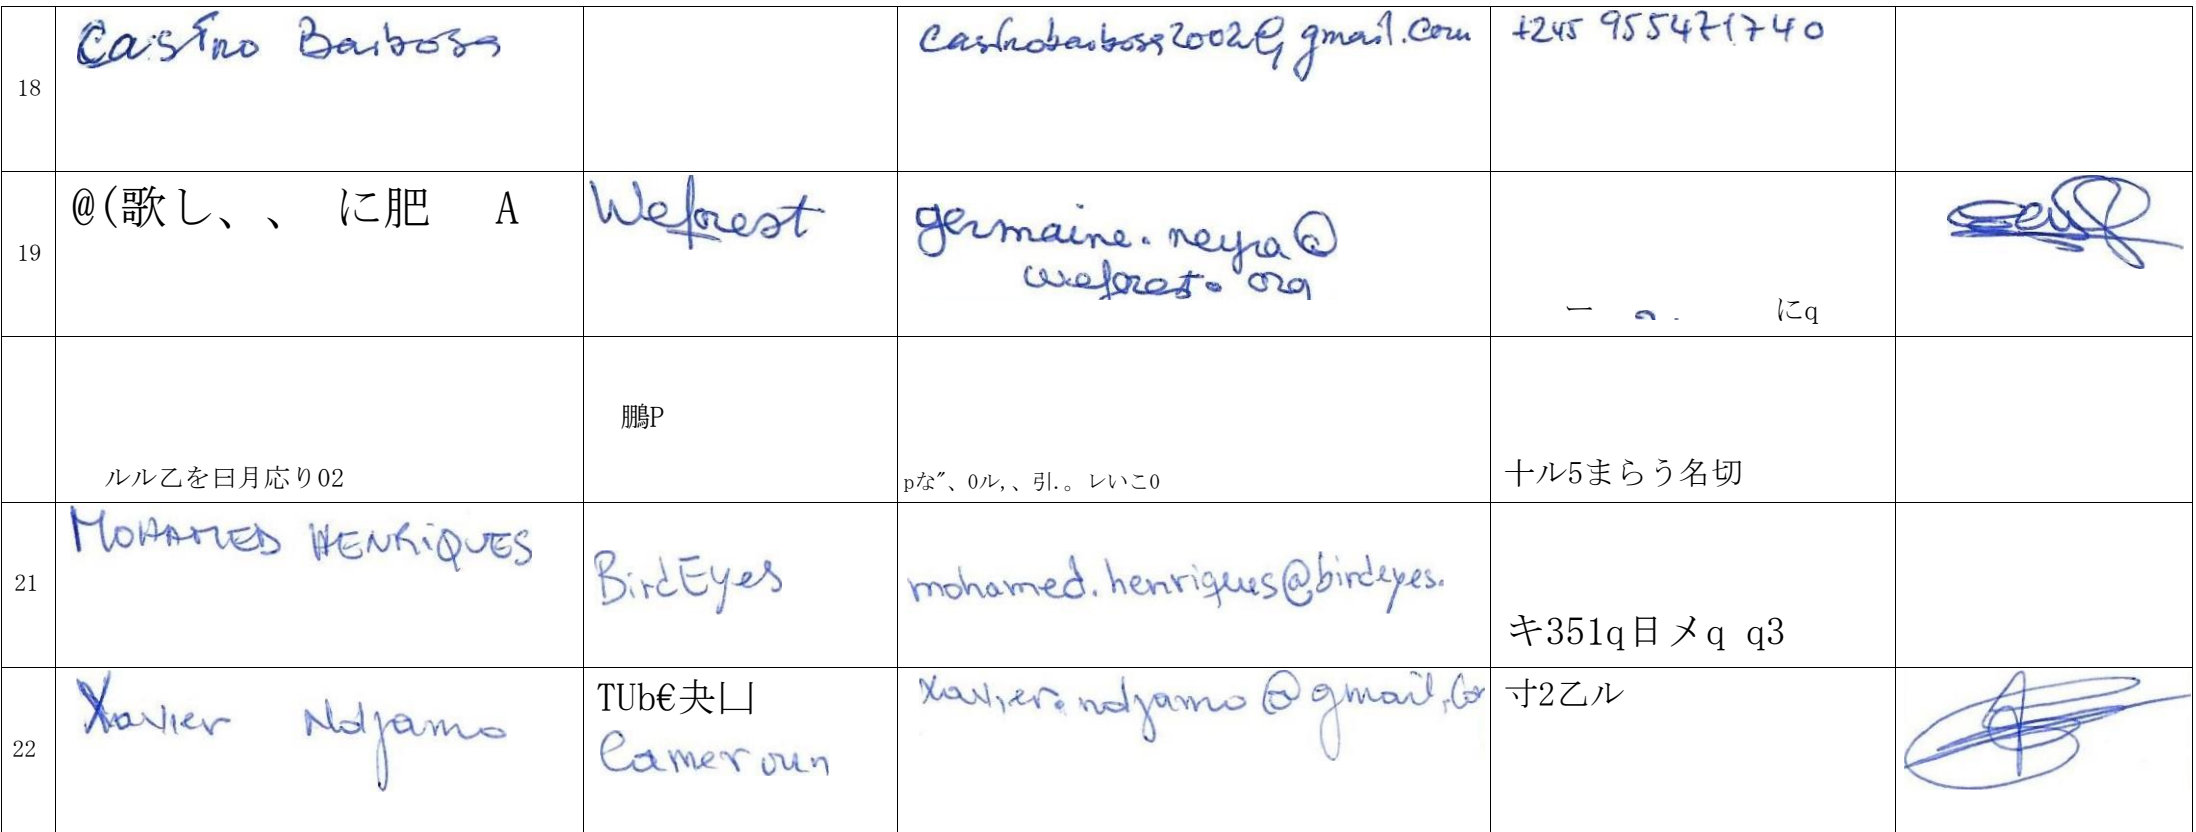 18
Castro Barbosa
castrobarbosa2002@gmail.com
+245 955471740
19
@(歌し、、 に肥 A
Weforest
germaine.neyra@
weforest.org
ー
にq
鵬P
ルル乙を曰月応り02
pな″、0ル,、引.。レいこ0
十ル5まらう名切
21
MOHAMED HENRiQUES
BirdEyes
mohamed.henriques@birdeyes.
キ351q日メq q3
22
Xavier Ndjamo
TUb€夫凵
Cameroun
xavier.ndjamo@gmail.co
寸2乙ル